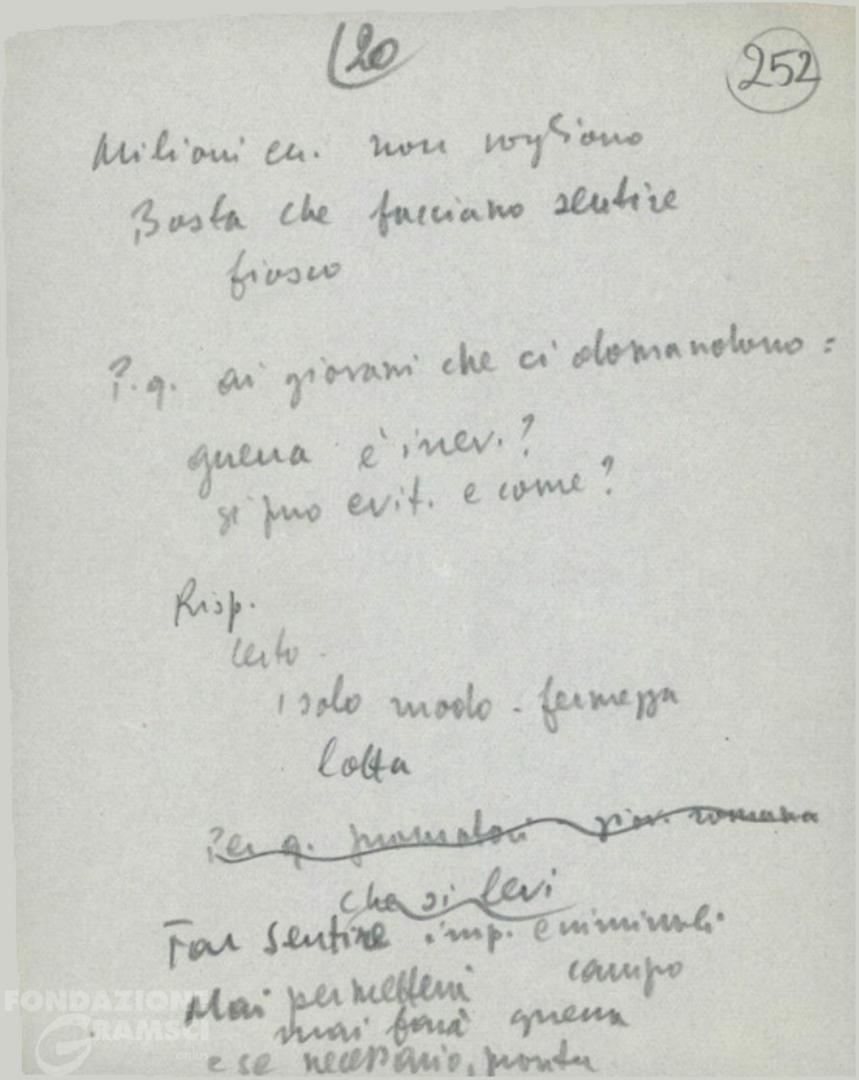 20
252
Milioni en. non vogliono
Basta che facciano sentire
fiasco
P.q. ai giovani che ci domandono:
guerra è inev.?
si puo evit. e come?
Risp.
certo.
1 solo modo - fermezza
lotta
Per q. giov. romana
che si levi
Far sentire imp. criminali
campo
Mai permetterà
mai farà guerra
e se necessario, pronta
FONDAZIONE
GRAMSCI
onlus